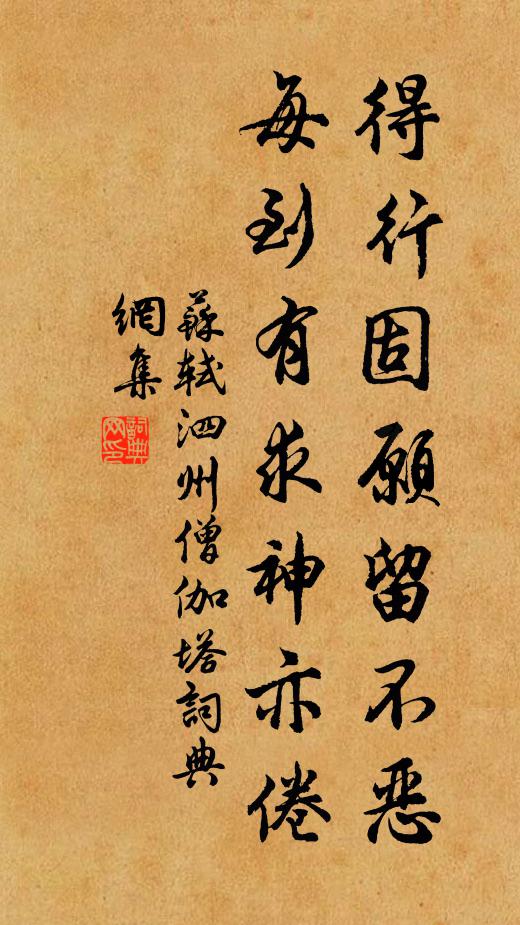 得行固願留不恶
每到有求神亦倦
蘇軾泗州僧伽塔詞典
網集
詞典网印